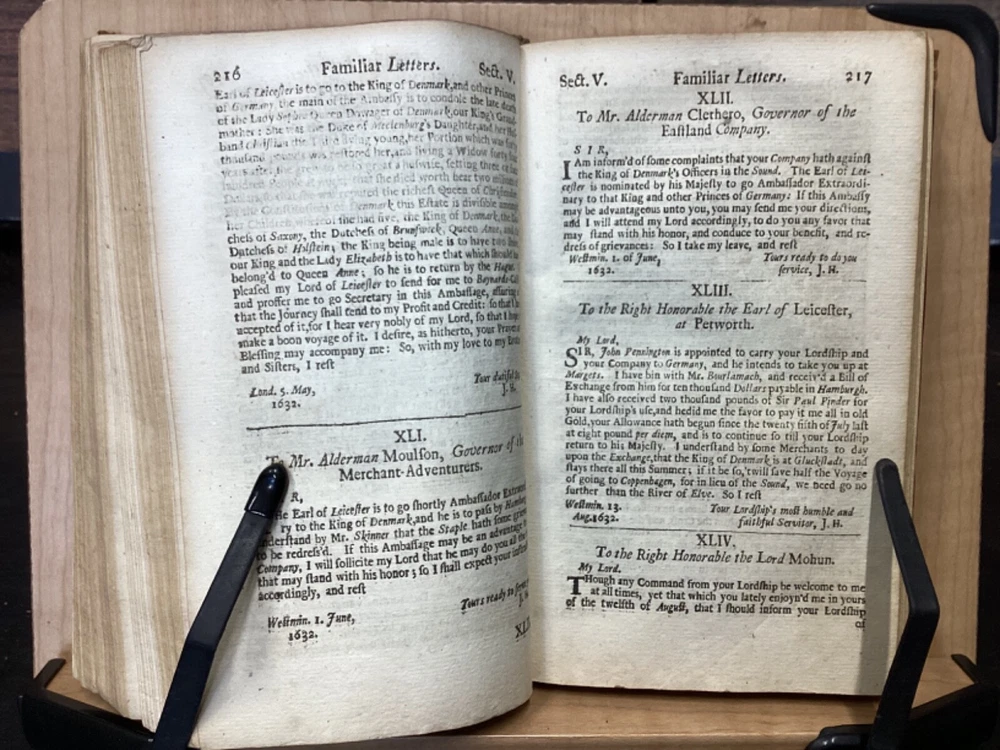 216 Familiar Letters. Sect. V.
Earl of Leicester is to go to the King of Denmark, and other Princes
of Germany, the main of the Ambassy is to condole the late death
of the Lady Sophie Queen Dowager of Denmark, our King's Grand-
mother: She was the Duke of Mecklenburg's Daughter, and her Hus-
band Christian the Third dying young, her Portion which was forty
thousand pounds was restored her, and living a Widow forty four
years after, she grew to be so great a huswife, setting three or four
hundred People at work, that she died worth near two millions of
Dollars, so that she was reputed the richest Queen of Christendom
Denmark this Estate is divisible amongst
her Children, whereof she had five, the King of Denmark, the Dut-
chess of Saxony, the Dutchess of Brunswick, Queen Anne, and the
Dutchess of Holstein; the King being male is to have two
our King and the Lady Elizabeth is to have that which should have
belong'd to Queen Anne; so he is to return by the Hague
pleased my Lord of Leicester to send for me to Baynards-Castle
and proffer me to go Secretary in this Ambassage, assuring
that the Journey shall tend to my Profit and Credit: so that I
accepted of it, for I hear very nobly of my Lord, so that I hope
make a boon voyage of it. I desire, as hitherto, your Prayers
Blessing may accompany me: So, with my love to my Brothers
and Sisters, I rest
Your dutiful
Lond. 5. May, J. H.
1632.
XLI.
To Mr. Alderman Moulson, Governor of the
Merchant-Adventurers.
R,
he Earl of Leicester is to go shortly Ambassador Extraordi-
ry to the King of Denmark, and he is to pass by Hamburgh
understand by Mr. Skinner that the Staple hath some
to be redress'd. If this Ambassage may be an advantage
Company, I will sollicite my Lord that he may do you all the
that may stand with his honor; so I shall expect your instructions
accordingly, and rest
Yours ready to serve
Westmin. 1. June, J. H.
1632.
XLII
Sect. V. Familiar Letters. 217
XLII.
To Mr. Alderman Clethero, Governor of the
Eastland Company.
S I R,
I Am inform'd of some complaints that your Company hath against
the King of Denmark's Officers in the Sound. The Earl of Lei-
cester is nominated by his Majesty to go Ambassador Extraordi-
nary to that King and other Princes of Germany: If this Ambassy
may be advantageous unto you, you may send me your directions,
and I will attend my Lord accordingly, to do you any favor that
may stand with his honor, and conduce to your benefit, and re-
dress of grievances: So I take my leave, and rest
Westmin. 1. of June, Yours ready to do you
1632. service, J. H.
XLIII.
To the Right Honorable the Earl of Leicester,
at Petworth.
My Lord,
SIR, John Pennington is appointed to carry your Lordship and
your Company to Germany, and he intends to take you up at
Margets. I have bin with Mr. Bourlamach, and receiv'd a Bill of
Exchange from him for ten thousand Dollars payable in Hamburgh.
I have also received two thousand pounds of Sir Paul Pinder for
your Lordship's use, and he did me the favor to pay it me all in old
Gold, your Allowance hath begun since the twenty fifth of July last
at eight pound per diem, and is to continue so till your Lordship
return to his Majesty. I understand by some Merchants to day
upon the Exchange, that the King of Denmark is at Gluckstads, and
stays there all this Summer; if it be so, 'twill save half the Voyage
of going to Coppenhagen, for in lieu of the Sound, we need go no
further than the River of Elve. So I rest
Westmin. 13. Your Lordship's most humble and
Aug. 1632. faithful Servitor, J. H.
XLIV.
To the Right Honorable the Lord Mohun.
My Lord.
THough any Command from your Lordship be welcome to me
at all times, yet that which you lately enjoyn'd me in yours
of the twelfth of August, that I should inform your Lordship
of